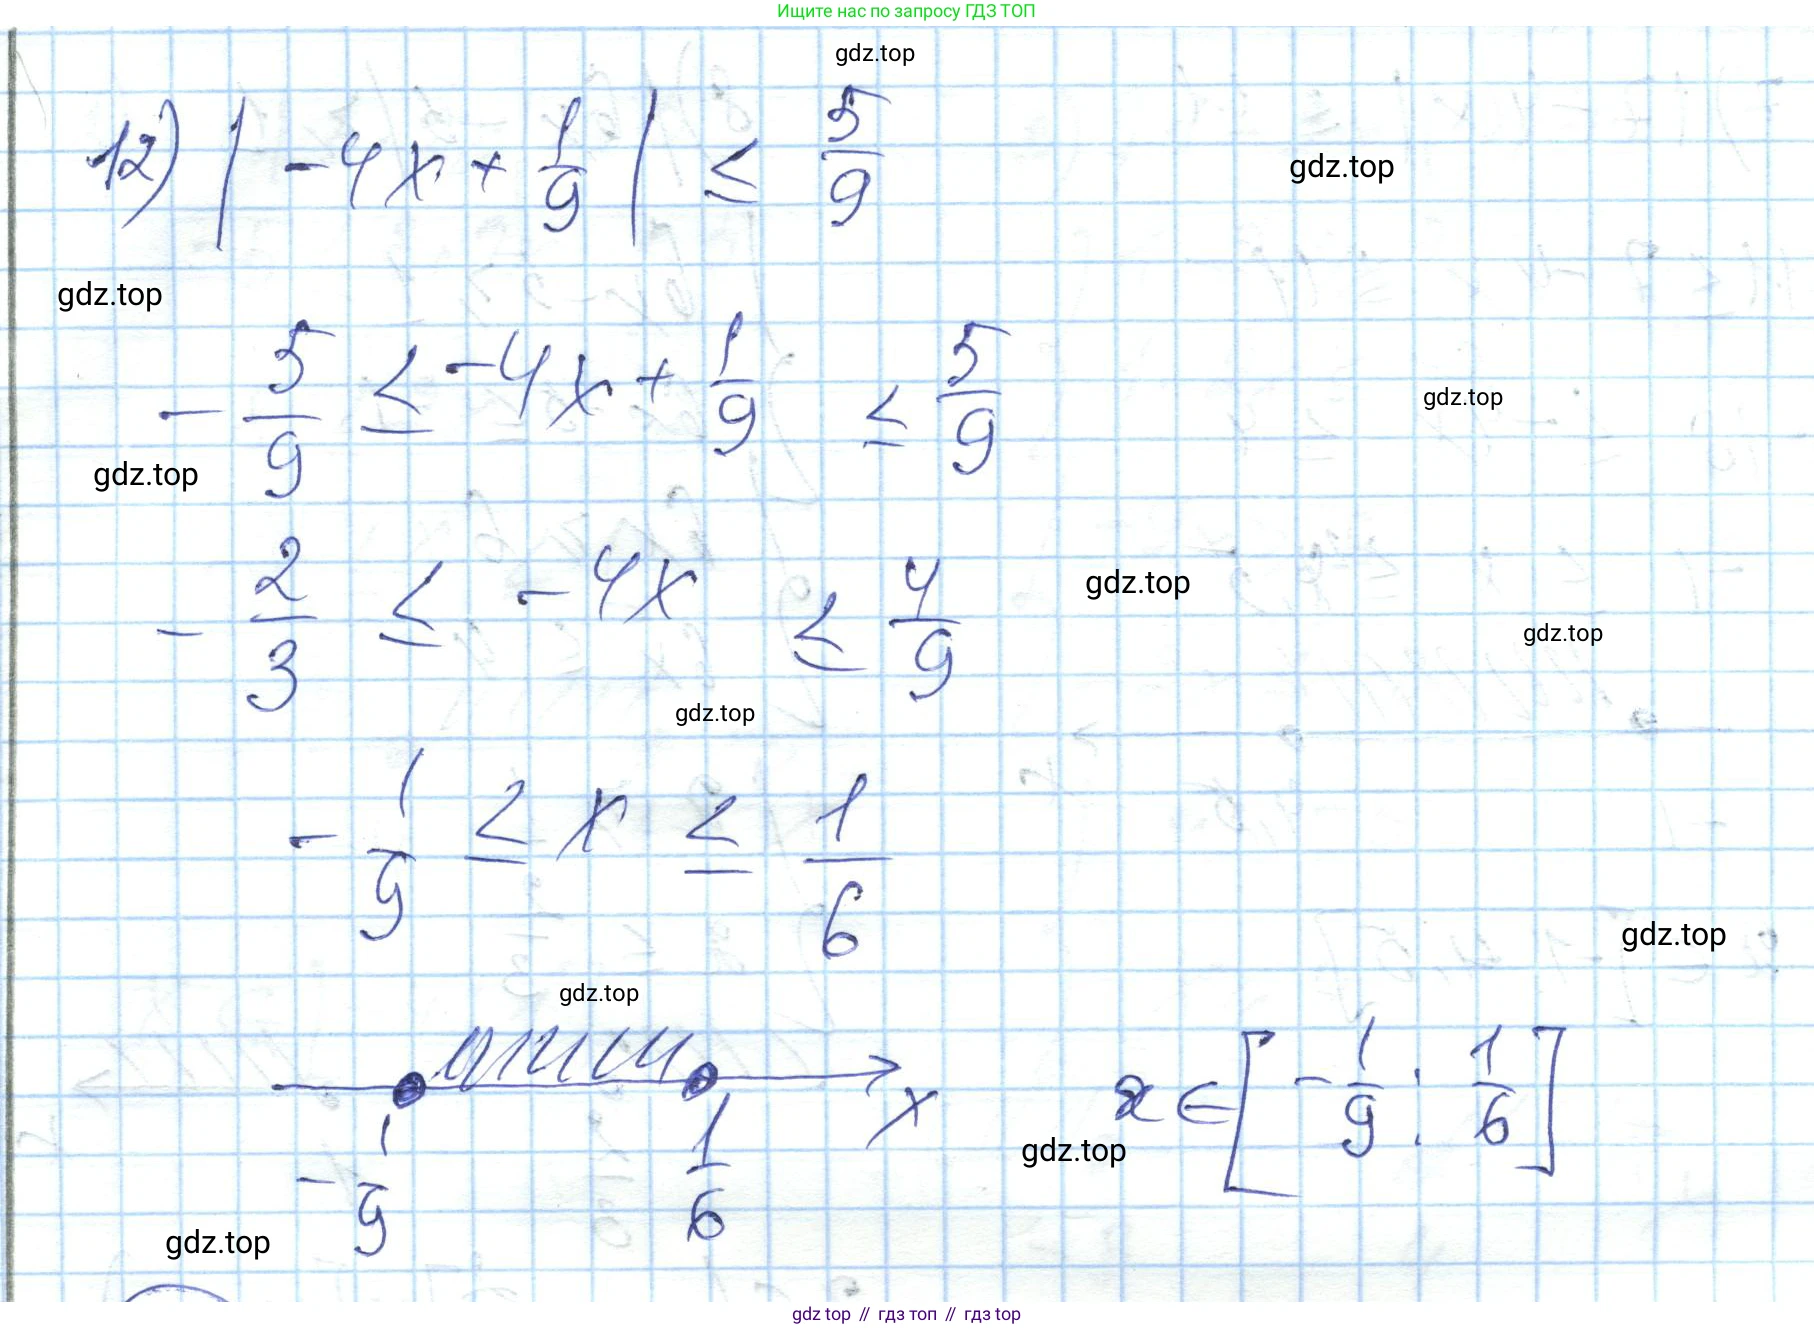 Ищите нас по запросу ГДЗ ТОП
gdz.top
12) | -4x + 1/9 | ≤ 5/9
gdz.top
gdz.top
- 5/9 ≤ -4x + 1/9 ≤ 5/9
gdz.top
gdz.top
- 2/3 ≤ -4x ≤ 4/9
gdz.top
gdz.top
gdz.top
- 1/9 ≤ x ≤ 1/6
gdz.top
gdz.top
x
- 1/9 1/6
x ∈ [ - 1/9 ; 1/6 ]
gdz.top
gdz.top
gdz top // гдз топ // gdz top